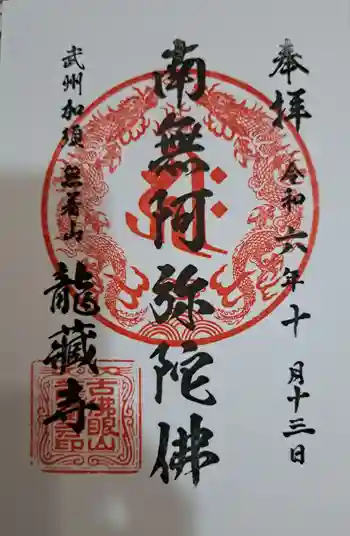 奉拝
令和六年十月十三日
南無阿弥陀佛
武州加須 無着山
龍蔵寺